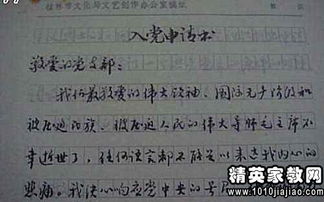 桂林市文化与文艺创作办公室稿纸
入党申请书
敬爱的党支部：
我们最敬爱的伟大领袖、国际无产阶级和
被压迫民族、被压迫人民的伟大导师毛主席不
幸逝世了，任何语言都不能足以表达我内心的
悲痛。我决心响应党中央的号召
精英家教网
www.1010jiajiao.com